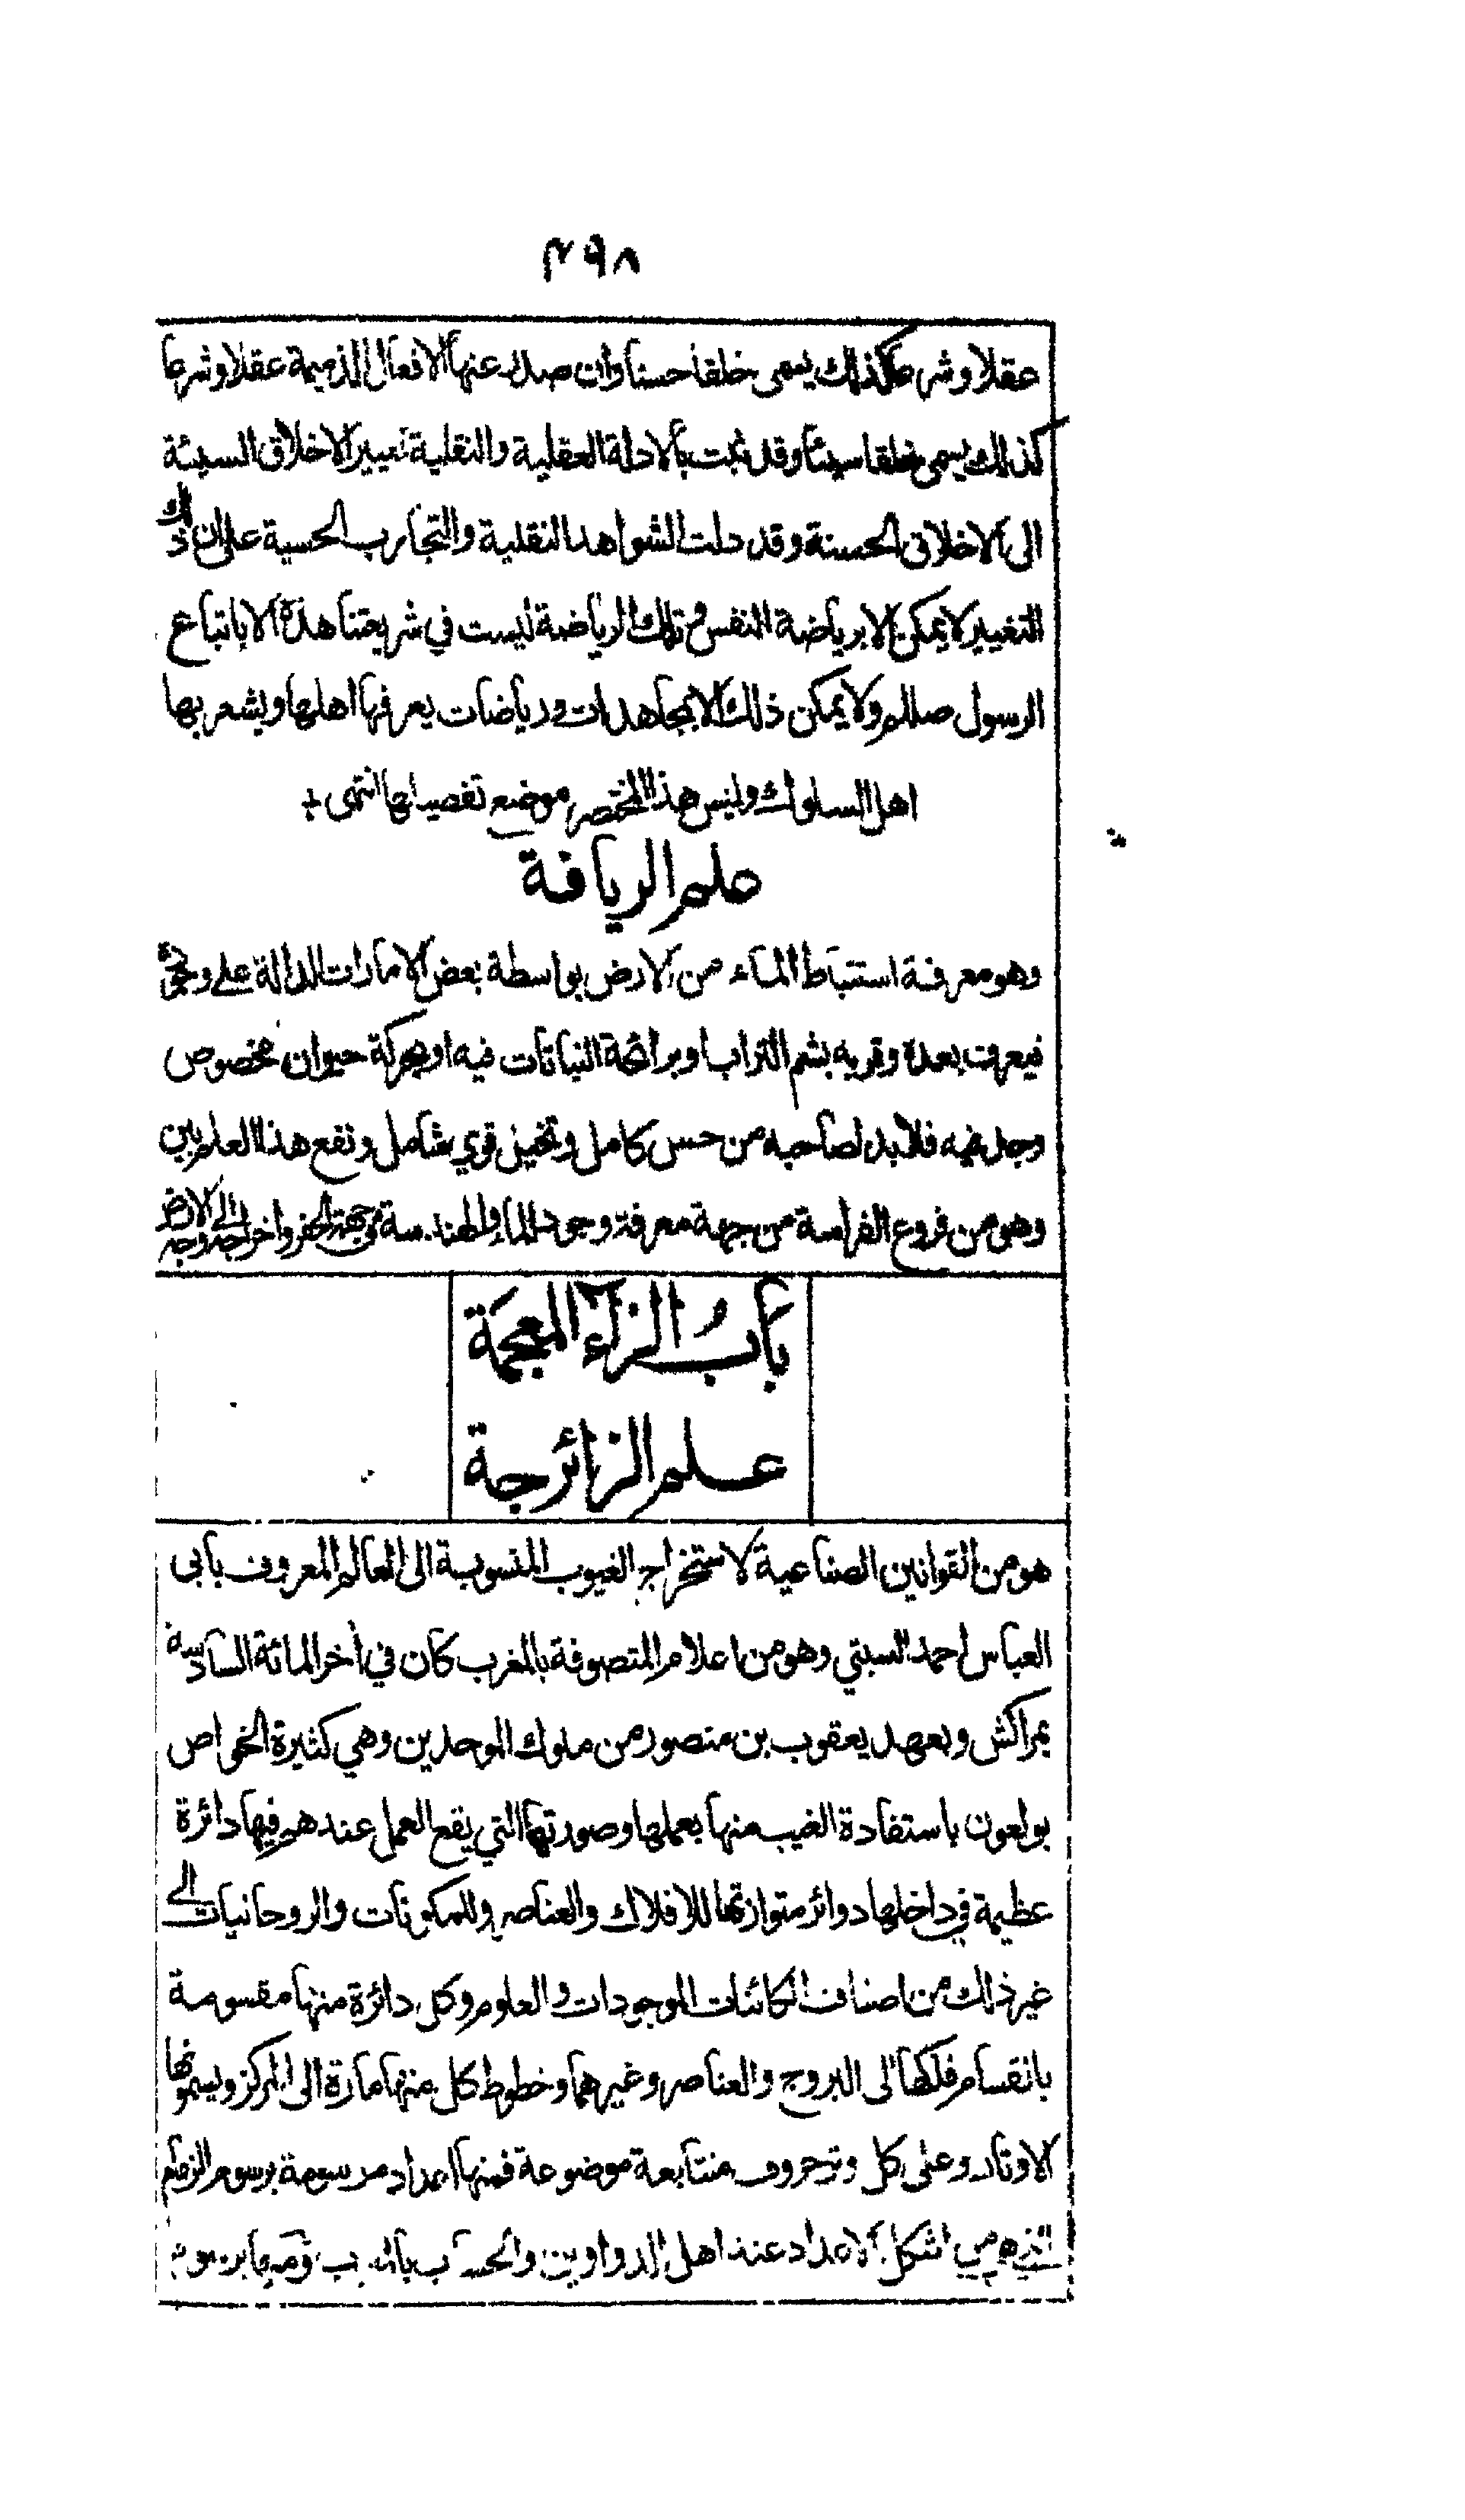 ٤٩٨
عقلا وشرعا كذلك يسمى خلقا حسنا وان صدر عنها الافعال الذميمة عقلا وشرعا
كذلك يسمى خلقا سيئا وقد ثبت بالادلة العقلية والنقلية تغيير الاخلاق السيئة
الى الاخلاق الحسنة وقد دلت الشواهد النقلية والتجارب الحسية على ان ذلك
التغيير لا يمكن الا برياضة النفس وتلك الرياضة ليست في شريعتنا هذه الا باتباع
الرسول صللم ولا يمكن ذلك الا بمجاهدات ورياضات يعرفها اهلها ويشعر بها
اهل السلوك وليس هذا المختصر موضع تفصيلها انتهى
علم الريافة
وهو معرفة استنباط الماء من الارض بواسطة بعض الامارات الدالة على وجوده
فيعرف بعده وقربه بشم التراب او برائحة النباتات فيه او بحركة حيوان مخصوص
وجد فيه فلا بد لصاحبه من حس كامل وتخيل قوي شامل ونفع هذا العلم بين
وهو من فروع الفراسة من جهة معرفة وجود الماء والهندسة من جهة الحفر واخراجه الى وجه الارض
باب الزاء المعجمة
علم الزائرجة
هو من القوانين الصناعية لاستخراج الغيوب المنسوبة الى العالم المعروف بابي
العباس احمد السبتي وهو من اعلام المتصوفة بالمغرب كان في أخر المائة السادسة
بمراكش وبعهد يعقوب بن منصور من ملوك الموحدين وهي كثيرة الخواص
يولعون باستفادة الغيب منها بعملها وصورتها التي يقع العمل عندهم فيها دائرة
عظيمة في داخلها دوائر متوازية للافلاك والعناصر وللمكونات والروحانيات الى
غير ذلك من اصناف الكائنات الموجودات والعلوم وكل دائرة منها مقسومة
بانقسام فلكها الى البروج والعناصر وغيرهما وخطوط كل منها مارة الى المركز ويسمونها
الاوتار وعلى كل وتر حروف متتابعة موضوعة فمنها اعداد مرسومة برسوم الزمام
التي هي من اشكال الاعداد عند اهل الدواوين والحساب بالمغرب ومنها برسوم